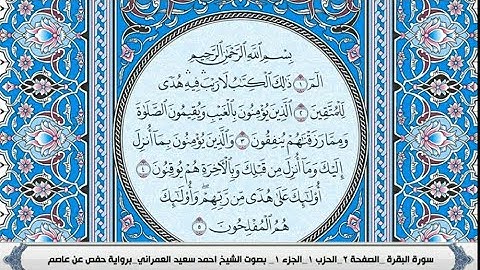 بِسْمِ ٱللَّهِ ٱلرَّحْمَٰنِ ٱلرَّحِيمِ
الٓمٓ ١ ذَٰلِكَ ٱلْكِتَٰبُ لَا رَيْبَ فِيهِ هُدًى
لِّلْمُتَّقِينَ ٢ ٱلَّذِينَ يُؤْمِنُونَ بِٱلْغَيْبِ وَيُقِيمُونَ ٱلصَّلَوٰةَ
وَمِمَّا رَزَقْنَٰهُمْ يُنفِقُونَ ٣ وَٱلَّذِينَ يُؤْمِنُونَ بِمَآ أُنزِلَ
إِلَيْكَ وَمَآ أُنزِلَ مِن قَبْلِكَ وَبِٱلْءَاخِرَةِ هُمْ يُوقِنُونَ ٤
أُو۟لَٰٓئِكَ عَلَىٰ هُدًى مِّن رَّبِّهِمْ وَأُو۟لَٰٓئِكَ
هُمُ ٱلْمُفْلِحُونَ ٥
سورة البقرة _الصفحة ٢_الحزب ١_الجزء ١_ بصوت الشيخ احمد سعيد العمراني_برواية حفص عن عاصم